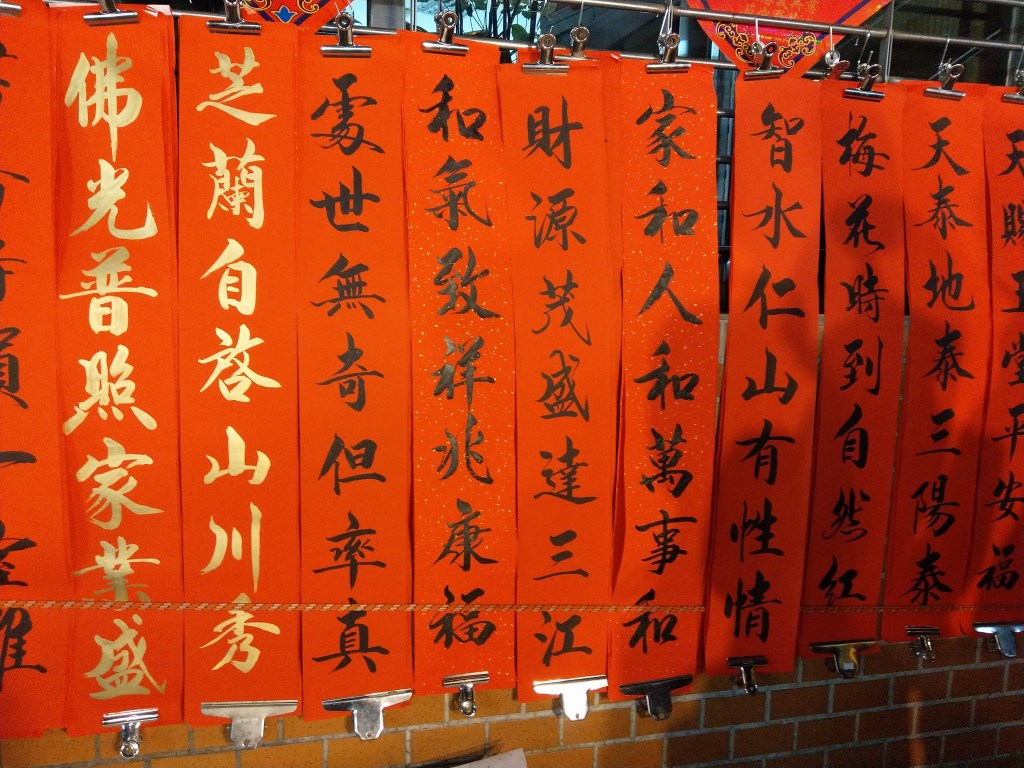 天賜玉堂平安福
天泰地泰三陽泰
梅花時到自然紅
智水仁山有性情
家和人和萬事和
財源茂盛達三江
和氣致祥兆康福
處世無奇但率真
芝蘭自啓山川秀
佛光普照家業盛